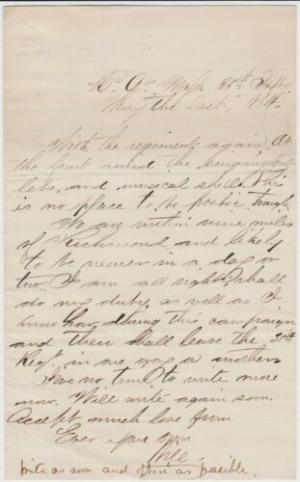 Hd. Qr. Mass. 25th Infty.
May the last, 1864.
With the regiment again. At
the front amid the singing bul
lets, and musical shell. This
is no place to be poetic though.
We are within nine miles
of Richmond and likely
to be nearer in a day or
two. I am all right & shall
do my duty, as well as I
know how, during this campaign
and then shall leave the 25th
Regt. in one way or another.
I've no time to write more
now. Will write again soon.
Accept much love from
Ever your own
Write as soon and often as possible.